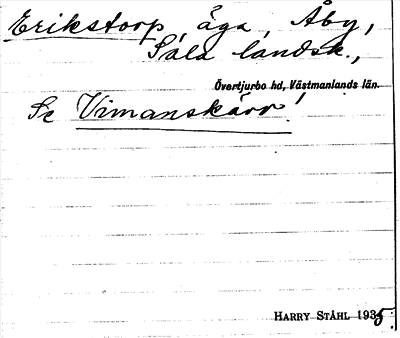 Erikstorp äga, Åby,
Sala landsk.,
Övertjurbo hd, Västmanlands län.
Se Vimanskärr!
HARRY STÅHL 1935.